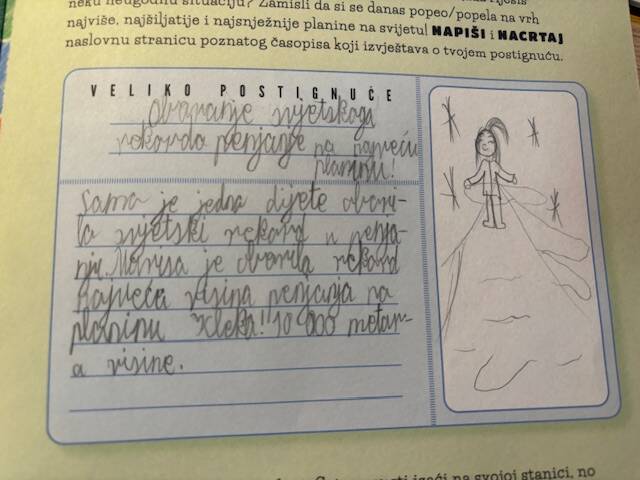 neku neugodnu situaciju? Zamisli da si se danas popeo/popela na vrh
najviše, najšiljatije i najsnježnije planine na svijetu! NAPIŠI i NACRTAJ
naslovnu stranicu poznatog časopisa koji izvještava o tvojem postignuću.
VELIKO POSTIGNUĆE
Obaranje svjetskoga
rekorda penjanje na najveću
planinu!
Sama je jedna dijete obori-
la svjetski rekord u penja-
nju. Marisa je oborila rekord
najveća visina penjanja na
planinu Kleka!! 10 000 metar-
a visine.
na svojoj stanici, no